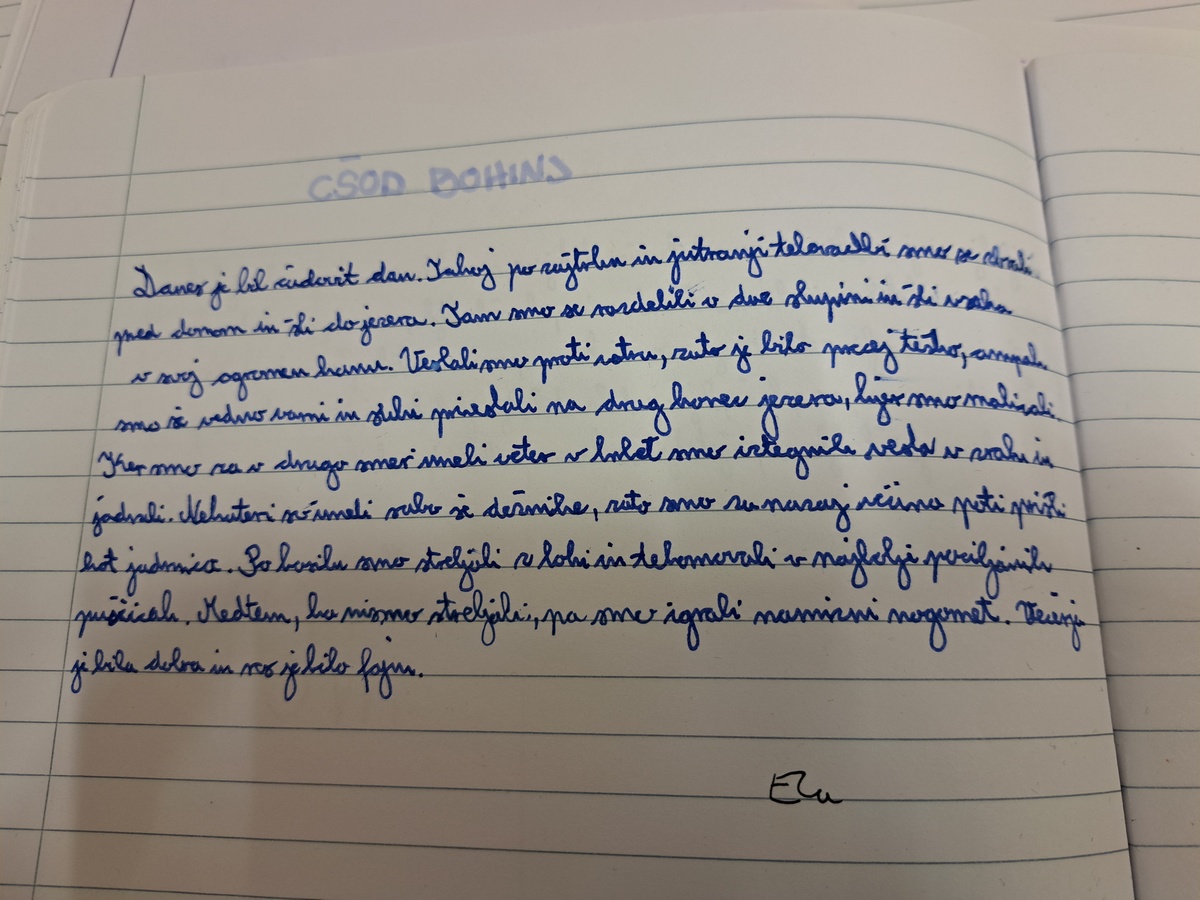 CŠOD BOHINJ
Danes je bil čudovit dan. Takoj po zajtrku in jutranji telovadbi smo se zbrali
pred domom in šli do jezera. Tam smo se razdelili v dve skupini in šli vsaka
v svoj ogromen kanu. Veslali smo proti vetru, zato je bilo precej težko, ampak
smo še vedno varni in suhi priveslali na drug konec jezera, kjer smo malicali.
Ker smo za v drugo smer imeli veter v hrbet smo iztegnili vesla v zrak in
jadrali. Nekateri so imeli sabo še dežnike, zato smo za nazaj večino poti prišli
kot jadrnica. Po kosilu smo streljali z loki in tekmovali v najbolj pociljanih
puščicah. Medtem, ko nismo streljali, pa smo igrali namizni nogomet. Večerja
je bila dobra in res je bilo fajn.